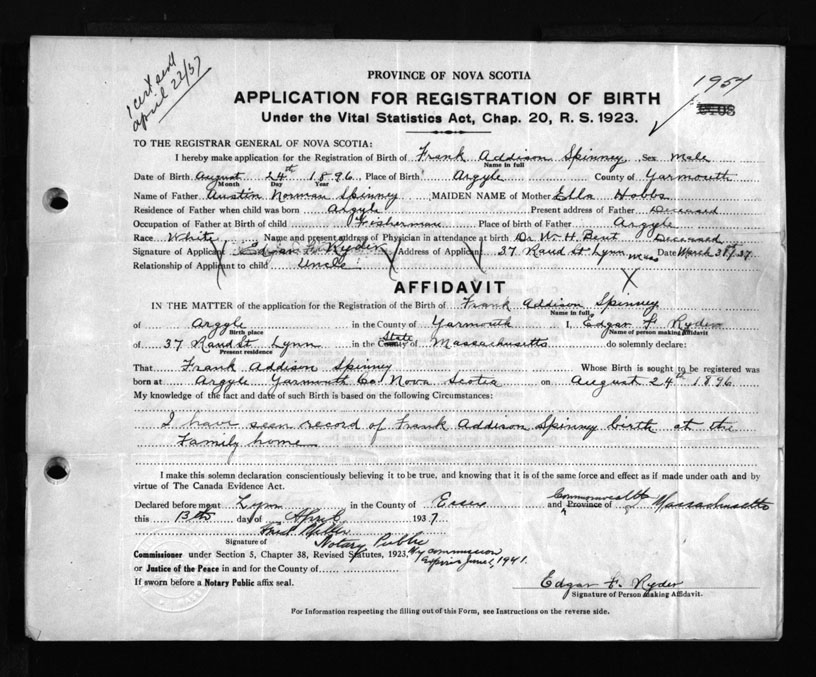 1 cert sent
april 22/37
1957
PROVINCE OF NOVA SCOTIA
APPLICATION FOR REGISTRATION OF BIRTH
Under the Vital Statistics Act, Chap. 20, R. S. 1923.
TO THE REGISTRAR GENERAL OF NOVA SCOTIA:
I hereby make application for the Registration of Birth of Frank Addison Spinney Sex Male
Name in full
Date of Birth August 24th 1896 Place of Birth Argyle County of Yarmouth
Month Day Year
Name of Father Austin Norman Spinney MAIDEN NAME of Mother Ella Hobbs
Residence of Father when child was born Argyle Present address of Father Deceased
Occupation of Father at Birth of child Fisherman Place of birth of Father Argyle
Race White Name and present address of Physician in attendance at birth Dr W. H. Bent Deceased
Signature of Applicant Edgar F. Ryder Address of Applicant 37 Rand St Lynn Mass Date March 31st/37
Relationship of Applicant to child Uncle X
AFFIDAVIT
IN THE MATTER of the application for the Registration of the Birth of Frank Addison Spinney
Name in full,
of Argyle in the County of Yarmouth I, Edgar F. Ryder
Birth place Name of person making Affidavit
of 37 Rand St Lynn in the County State of Massachusetts do solemnly declare:
Present residence
That Frank Addison Spinney Whose Birth is sought to be registered was
born at Argyle Yarmouth Co. Nova Scotia on August 24th 1896
My knowledge of the fact and date of such Birth is based on the following Circumstances:
I have seen record of Frank Addison Spinney birth at the
Family home
I make this solemn declaration conscientiously believing it to be true, and knowing that it is of the same force and effect as if made under oath and by
virtue of The Canada Evidence Act.
Declared before me at Lynn in the County of Essex and Commonwealth Province of Massachusetts
this 13th day of April 1937
Notary Public
Signature of
My commission
Commissioner under Section 5, Chapter 38, Revised Statutes, 1923,
Expires June 1, 1941.
or Justice of the Peace in and for the County of
If sworn before a Notary Public affix seal.
Edgar F. Ryder
Signature of Person making Affidavit.
For Information respecting the filling out of this Form, see Instructions on the reverse side.